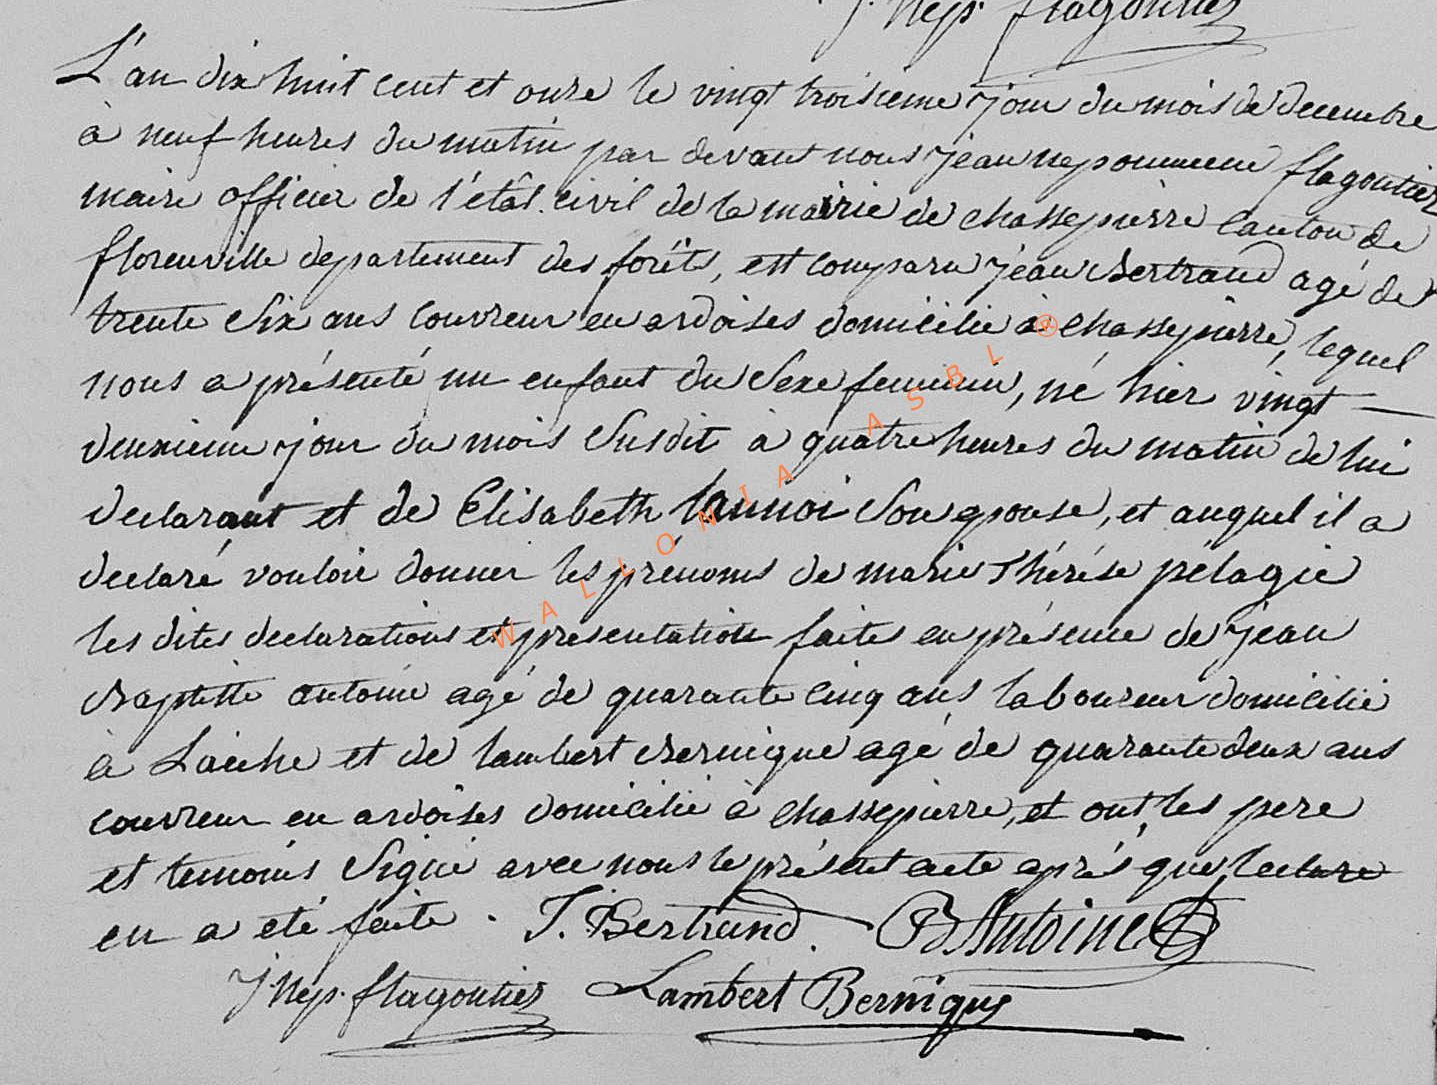 J. Nep. flagontier
L'an dix huit cent et onze le vingt troisieme jour du mois de decembre
à neuf heures du matin par devant nous jean nepomucene flagontier
maire officier de l'état civil de la mairie de chassepierre canton de
florenville departement des forêts, est comparu jean Bertrand agé de
trente Six ans couvreur en ardoises domicilié à Chassepierre, lequel
nous a présenté un enfant du Sexe feminin, né hier vingt —
deuxieme jour du mois Susdit à quatre heures du matin de lui
declarant et de Elisabeth lannoi Son epouse, et auquel il a
declaré vouloir donner les prénoms de marie Thérése pélagie
les dites declarations et presentation faites en présence de jean
Baptiste antoine agé de quarante Cinq ans laboureur domicilié
à Laiche et de lambert Bernique agé de quarante deux ans
couvreur en ardoises domicilié à Chassepierre, et ont les pere
et temoins Signé avec nous le présent acte aprés que lecture
en a eté faite . J. Bertrand. B Antoine
J. Nep. flagontier Lambert Bernique
WALLONIA ASBL ®